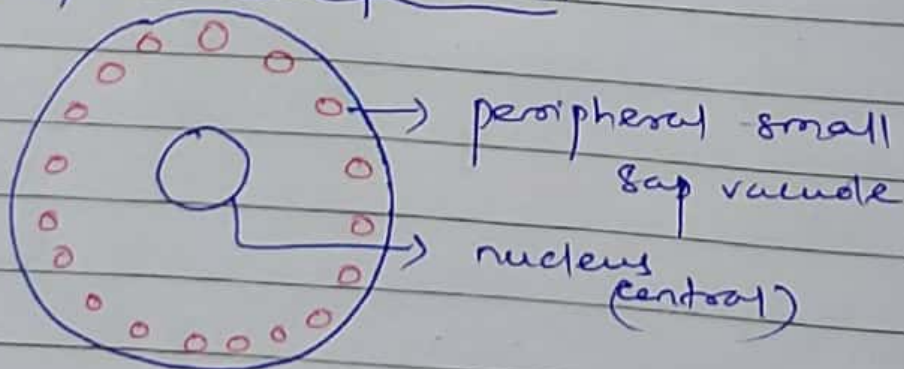 peripheral small
sap vacuole
nucleus
(central)